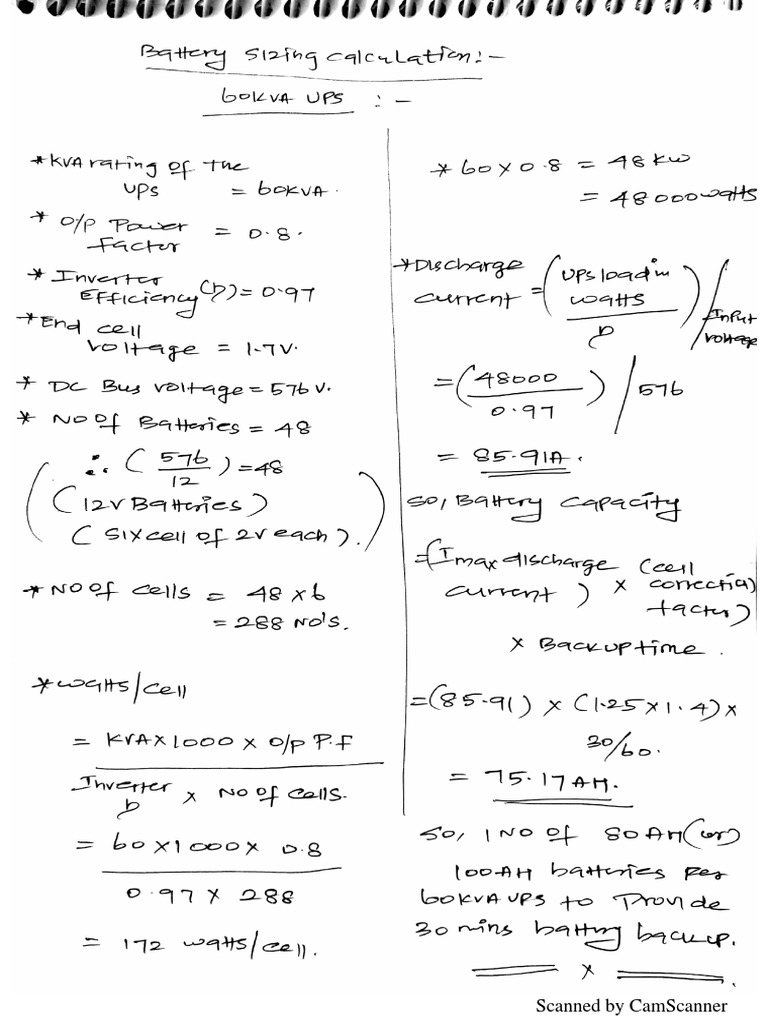 Battery sizing calculation:-
60KVA UPS :-
* KVA rating of the
UPS = 60KVA.
* O/P Power
Factor = 0.8.
* Inverter
Efficiency (η) = 0.97
* End cell
voltage = 1.7V.
* DC Bus voltage = 576V.
* No of Batteries = 48
∴ (576/12) = 48
(12V Batteries)
(six cell of 2V each).
* No of cells = 48 x 6
= 288 No's.
* watts/cell
= KVA x 1000 x O/P P.f
Inverter η x No of cells.
= 60 x 1000 x 0.8
0.97 x 288
= 172 watts/cell.
* 60 x 0.8 = 48 KW
= 48000 watts
* Discharge current = (UPS load in watts / η) / Input voltage
= (48000 / 0.97) / 576
= 85.91A.
So, Battery capacity
= (I max discharge current) x (cell correction factor)
x Backup time.
= (85.91) x (1.25 x 1.4) x
30/60.
= 75.17 AH.
So, 1 No of 80AH (or)
100AH batteries per
60KVA UPS to Provide
30 mins battery backup.
x
Scanned by CamScanner